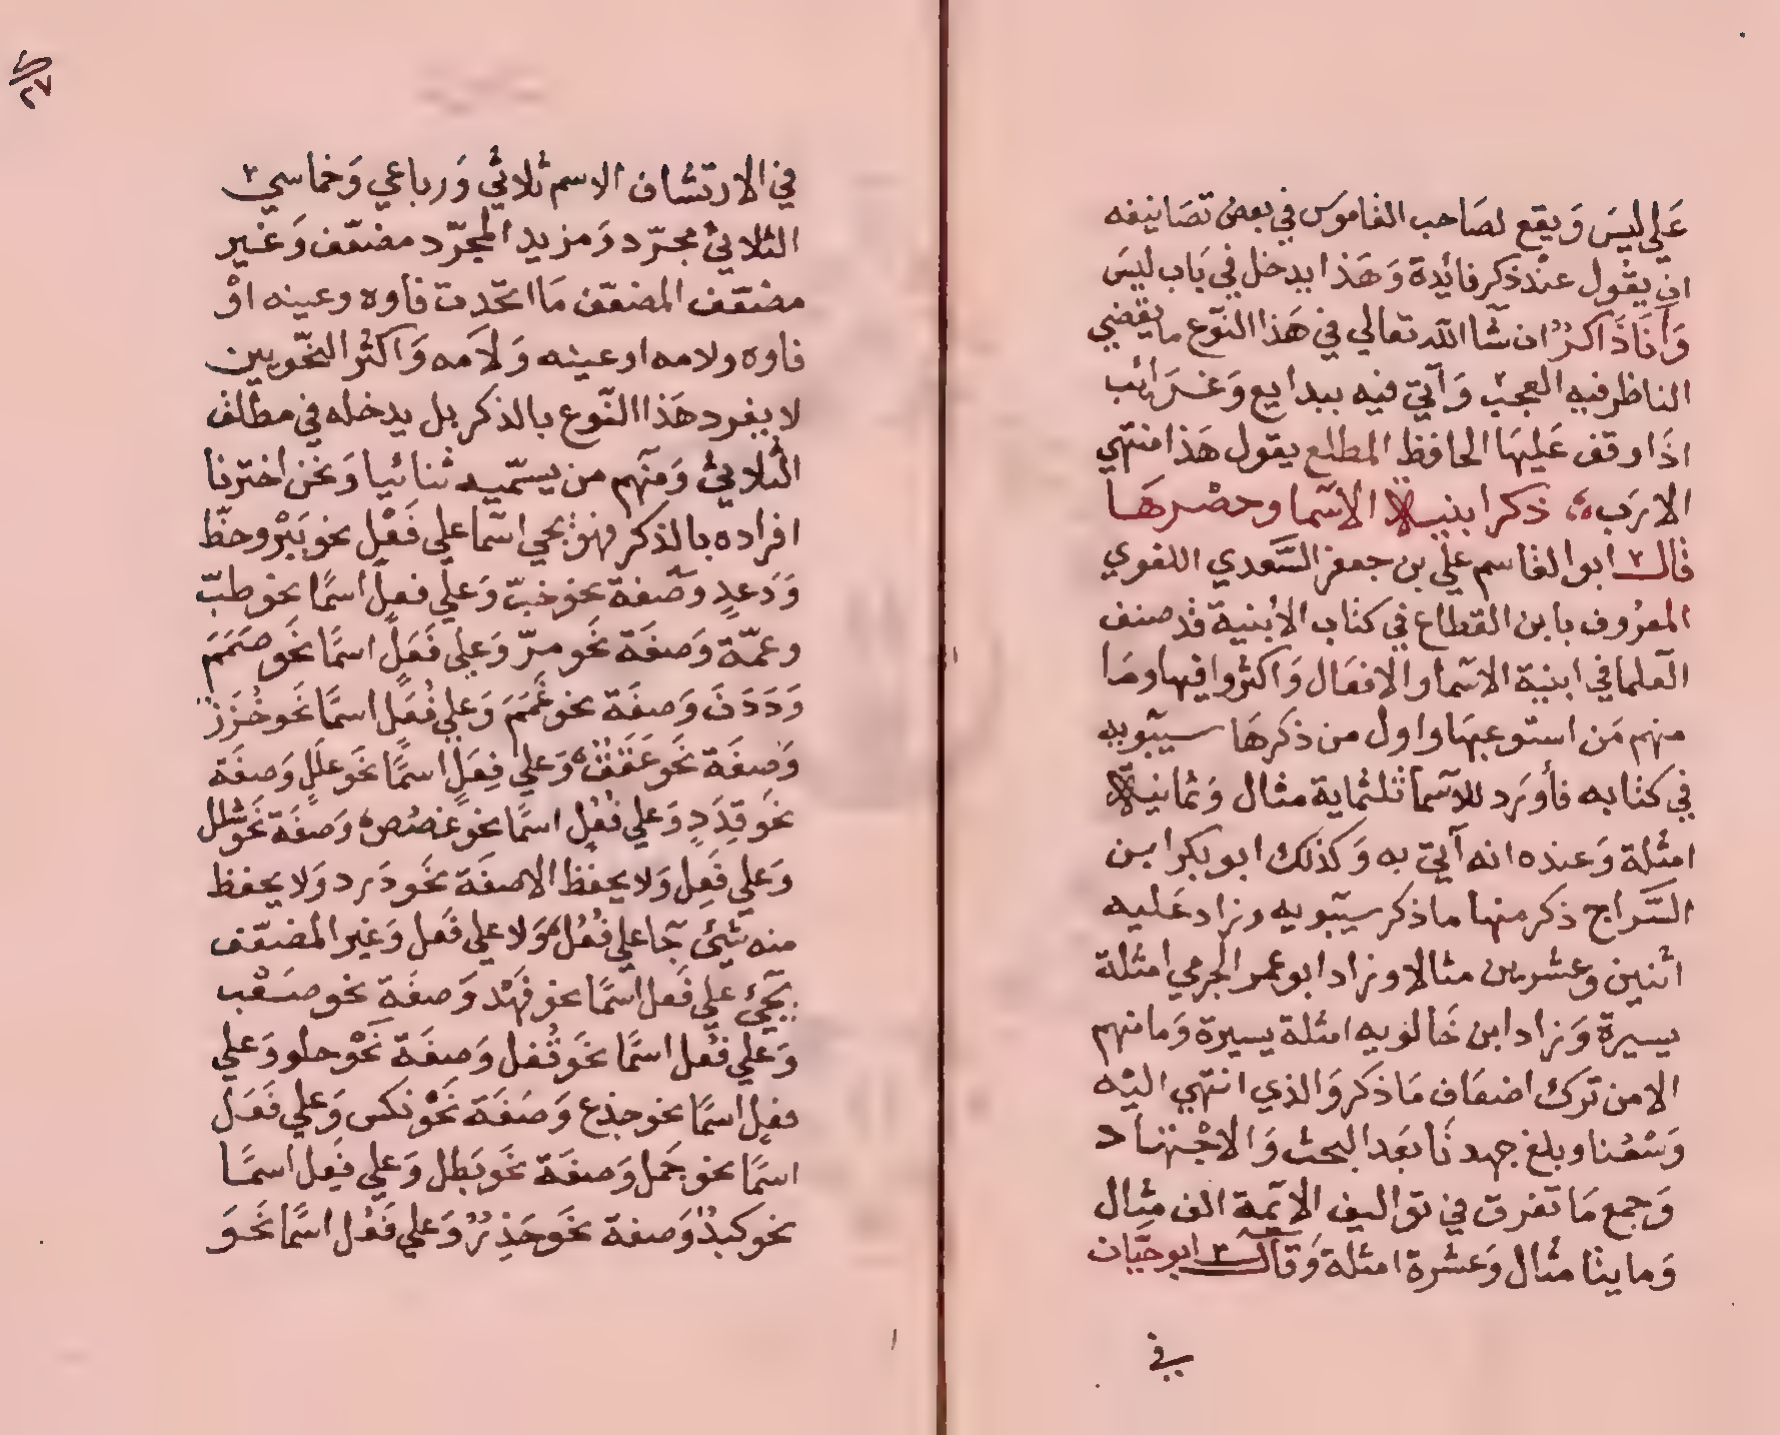 عَلي ليسَ وَيقع لصَاحب القاموسَ في بعض تصَانيفه
ان يقول عند ذكر فائدة وَهَذا يدخل في بَاب ليسَ
وَأنَا ذَاكرٌ ان شآ الله تعَالي في هَذا النوع ما يقضي
الناظر فيه العجبْ وَآتي فيه ببدايع وَغَرَائب
اذَا وقف عَليهَا الحافظ المطلع يقول هَذا منتهي
الارَب ذكر ابنية الاسَما وحصْرهَا
قال ابوا القاسم علي بن جعفر السَّعدي اللغوي
المعرُوف بابن القطاع في كتاب الأبنية قد صنف
العَلما في ابنية الاسَما والافعَال وَاكثروا فيها ومَا
منهم مَن استوعبهَا واول من ذكرهَا سيبَويه
في كتابه فأورَد للاسَما ثلثماية مثال وَثمانية
امثلة وَعنده انه آتي به وَكذلك ابو بكر ابن
السَّراج ذكر منها ما ذكر سيبَويه وزاد عَليه
اثنين وعشرين مثالا وزاد ابو عمر الجرمي امثلة
يسيرة وَزاد ابن خَالويه امثلة يسيرة وَمامنهم
الا من ترك اضعَاف مَا ذكر وَالذي انتهي اليْه
وَسْعُنا وبلغ جهدنَا بعَد البحث وَالاجْتهاد
وَجمع مَا تفرق في تواليف الايمة الف مثال
وَمايتا مثال وَعشرة امثلة وَقال ابو حيّان
في
٢٧
في الارتشاف الاسم ثلاثي وَرباعي وَخماسي
الثلاثي مجرّد وَمزيد المجرّد مضعّف وَغير
مضعّف المضعّف مَا اتحّدت فاوه وعينه اوْ
فاوه ولامه او عينه وَلاَمه وَاكثر النحّويين
لا يفرد هَذا النوع بالذكر بل يدخله في مطلق
الثلاثي وَمنهم من يسمّيه ثنائيا وَنحن اخترنا
افراده بالذكر فهو يجي اسَما علي فَعْلٍ نحو بَبْر وحظّ
وَدَعدٍ وصَفة نحو خبّ وَعلي فعلٍ اسمًا نحو طبّ
وعمّة وَصفَة نحَو مرّ وَعلي فَعَلٍ اسمًا نحَو صَمَمَ
وَدَدَنَ وَصفَة نحو عَمَمَ وَعلي فُعَل اسمًا نحَو خُزَز
وَصفَة نحَو عَقَقٌ وَعلي فِعَلٍ اسمًا نحَو عللٍ وَصفَة
نحَو قِدَدٍ وَعلي فُعُلٍ اسمًا نحو غصُص وَصفَة نحَو شلل
وَعلي فَعِل وَلا يحفظ الا صفَة نحَو دَرد وَلا يحفظ
منه شئ جَا علي فُعُل وَلا علي فَعل وَغير المضعّف
يجَئ علي فَعل اسمًا نحو فَهْد وَصفَة نحو صَعْب
وَعلي فُعل اسمًا نحَو قُفل وَصفَة نحَو حلو وَعلي
فعِل اسمًا نحو جذع وَصَفَة نحَو نكس وَعلي فَعَل
اسمًا نحو جَمل وَصفَة نحَو بَطل وَعلي فَعِل اسمًا
نحو كبدٌ وَصفة نحَو حَذِرٌ وَعلي فَعُل اسمًا نحَو